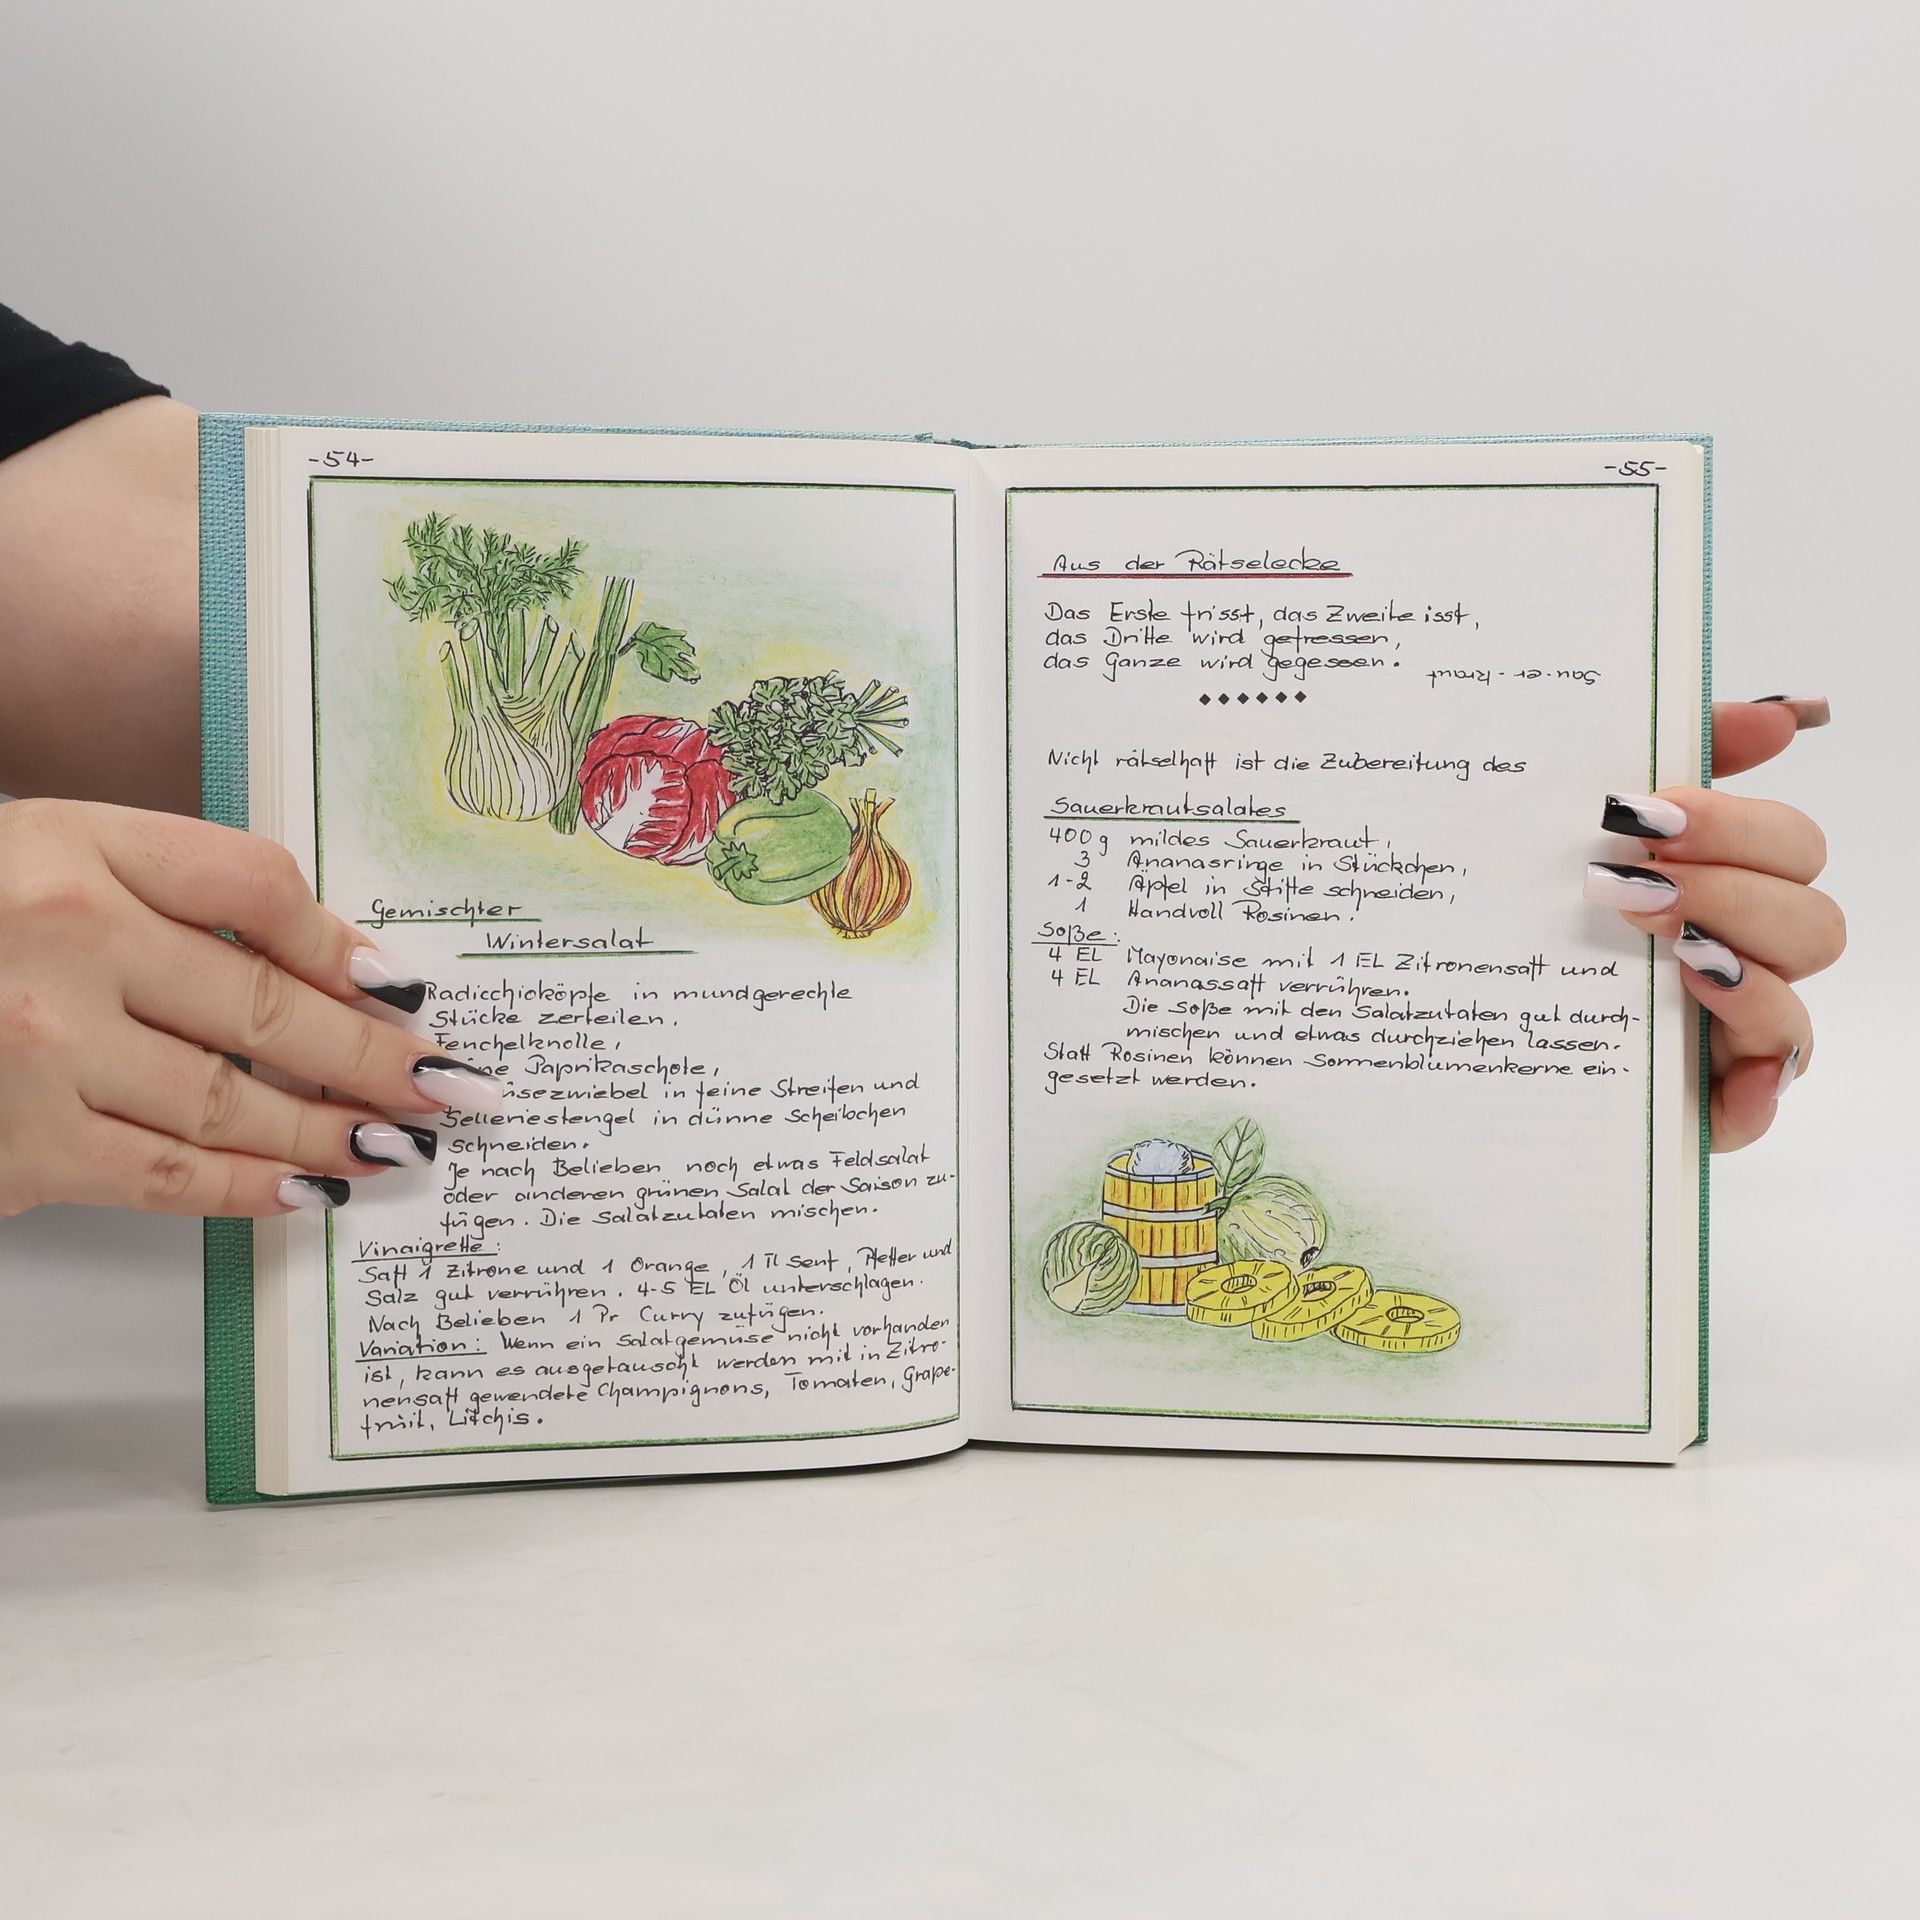 -54-
Gemischter
Wintersalat
Radicchioköpfe in mundgerechte
Stücke zerteilen.
Fenchelknolle,
Paprikaschote,
in feine Streifen und
Selleriestengel in dünne Scheibchen
schneiden.
Je nach Belieben noch etwas Feldsalat
oder anderen grünen Salat der Saison zu-
fügen. Die Salatzutaten mischen.
Vinaigrette:
Saft 1 Zitrone und 1 Orange, 1 Tl Senf, Pfeffer und
Salz gut verrühren. 4-5 EL Öl unterschlagen.
Nach Belieben 1 Pr Curry zufügen.
Variation: Wenn ein Salatgemüse nicht vorhanden
ist, kann es ausgetauscht werden mit in Zitro-
nensaft gewendete Champignons, Tomaten, Grape-
fruit, Litchis.
-55-
Aus der Rätselecke
Das Erste frisst, das Zweite isst,
das Dritte wird gefressen,
das Ganze wird gegessen.
Sau-er-kraut
Nicht rätselhaft ist die Zubereitung des
Sauerkrautsalates
400 g mildes Sauerkraut,
3 Ananasringe in Stückchen,
1-2 Äpfel in Stifte schneiden,
1 Handvoll Rosinen.
Soße:
4 EL Mayonaise mit 1 EL Zitronensaft und
4 EL Ananassaft verrühren.
Die Soße mit den Salatzutaten gut durch-
mischen und etwas durchziehen lassen.
Statt Rosinen können Sonnenblumenkerne ein-
gesetzt werden.